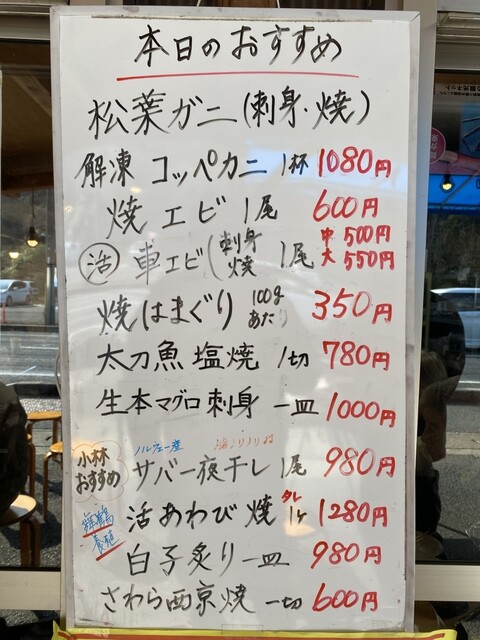 本日のおすすめ
松葉ガニ(刺身・焼)
解凍 コッペカニ 1杯 1080円
焼エビ 1尾 600円
活 車エビ(刺身 焼 1尾 中 500円 大 550円
焼はまぐり 100gあたり 350円
太刀魚塩焼 1切 780円
生本マグロ刺身 一皿 1000円
ノルウェー産
小林おすすめ サバ一夜干し 1尾 980円
舞鶴養殖 活あわび焼 タレ 1ケ 1280円
白子炙り 一皿 980円
さわら西京焼 一切 600円